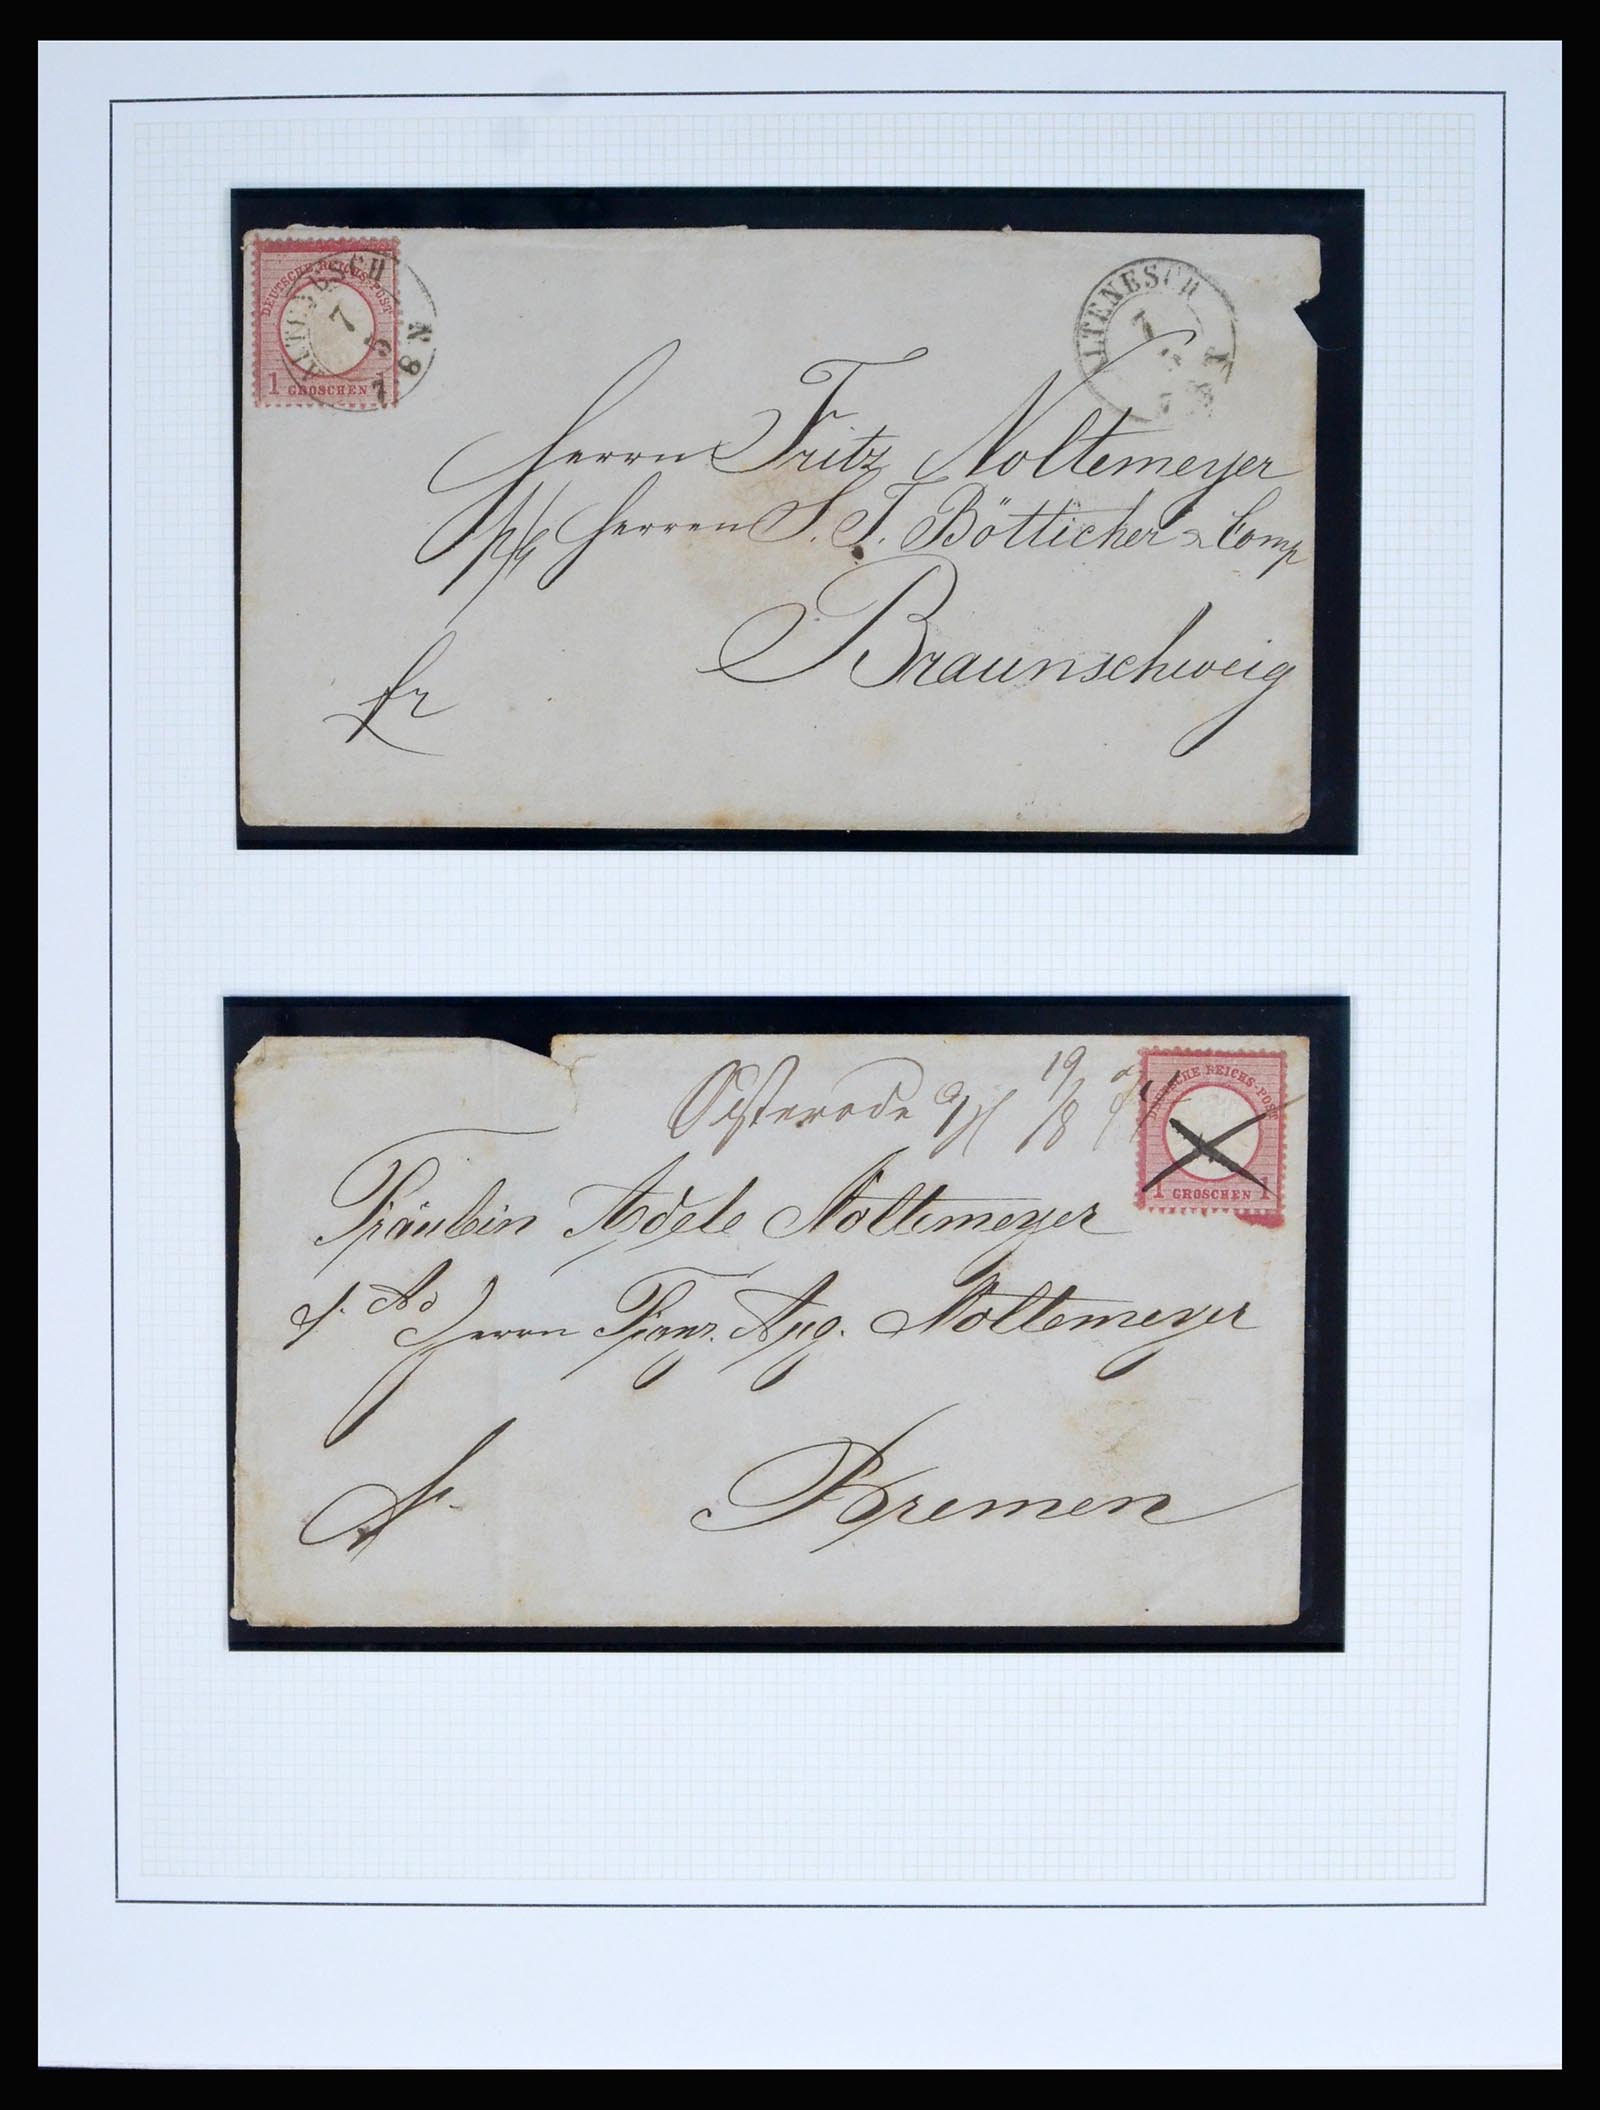 DEUTSCHE REICHS-POST
1 GROSCHEN 1
ALTENESCH
7 5
7-8 N
LTENESCH
7
Herrn Fritz Noltemeyer
Herren S. T. Bötticher & Comp
Braunschweig
fr
Osterode a/H 19/8
DEUTSCHE REICHS-POST
1 GROSCHEN 1
Fräulein Adele Noltemeyer
Herrn Franz Aug. Noltemeyer
fr.
Bremen